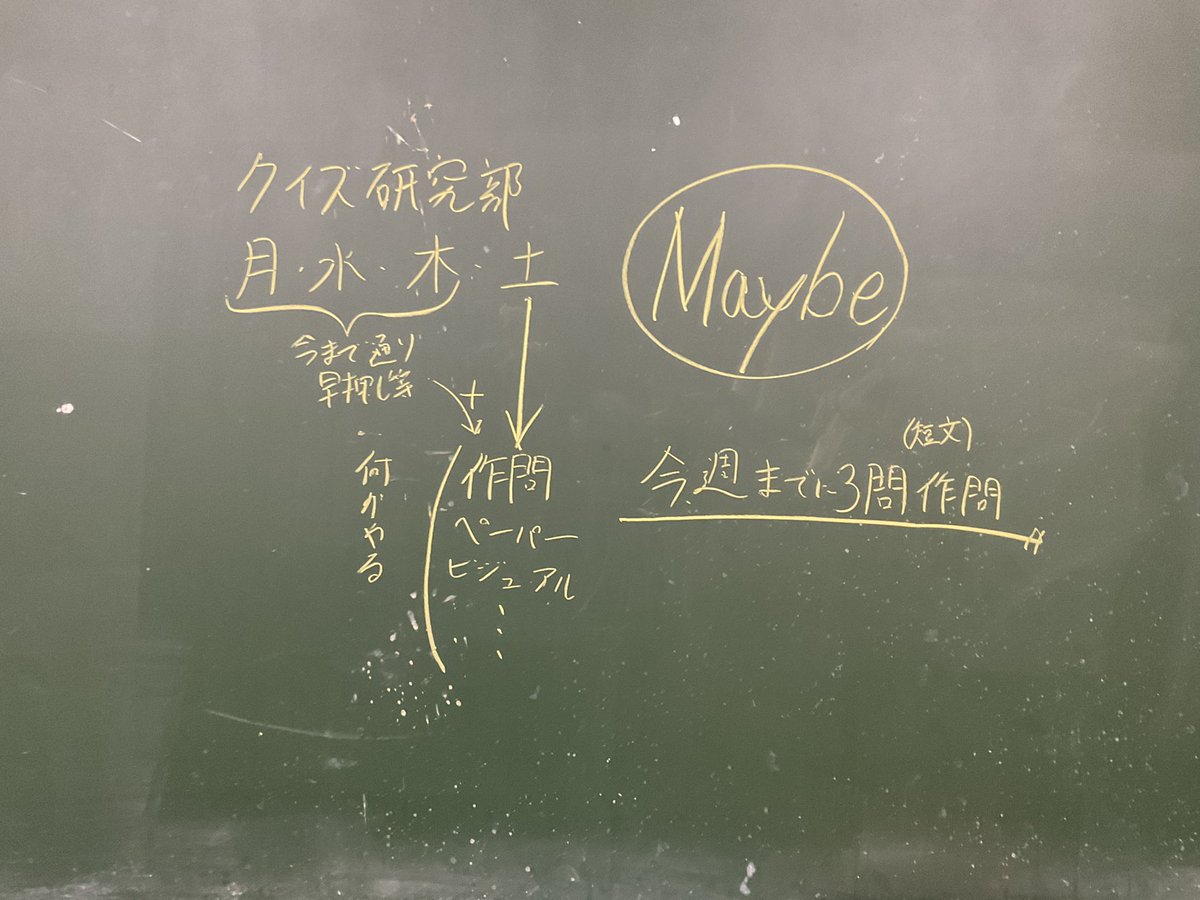 クイズ研究部
月・水・木・土
今まで通り
早押し等
+
何かやる
作問
ペーパー
ビジュアル
⋮
Maybe
(短文)
今週までに3問作問